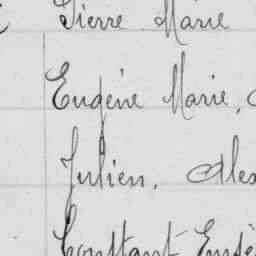 Pierre Marie
Eugène Marie,
Julien, Alex
Constant Eugè